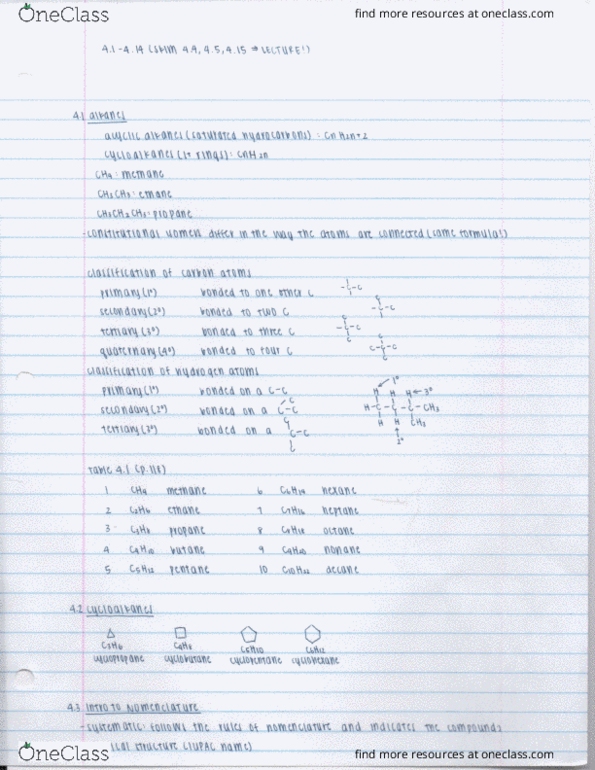 OneClass find more resources at oneclass.com
4.1-4.14 (SKIM 4.4, 4.5, 4.15 → LECTURE!)
4.1 alkanes
acyclic alkanes (saturated hydrocarbons): CnH2n+2
cycloalkanes (1+ rings): CnH2n
CH4: methane
CH3CH3: ethane
CH3CH2CH3: propane
-constitutional isomers differ in the way the atoms are connected (same formula!)
classification of carbon atoms
primary (1°) bonded to one other C
secondary (2°) bonded to two C
tertiary (3°) bonded to three C
quaternary (4°) bonded to four C
classification of hydrogen atoms
primary (1°) bonded on a C-C
secondary (2°) bonded on a C-C
tertiary (3°) bonded on a C-C
Table 4.1 (p.118)
1 CH4 methane 6 C6H14 hexane
2 C2H6 ethane 7 C7H16 heptane
3 C3H8 propane 8 C8H18 octane
4 C4H10 butane 9 C9H20 nonane
5 C5H12 pentane 10 C10H22 decane
4.2 cycloalkanes
C3H6 C4H8 C5H10 C6H12
cyclopropane cyclobutane cyclopentane cyclohexane
4.3 Intro to Nomenclature
-systematic: follows the rules of nomenclature and indicates the compounds
cal structure (IUPAC name)
OneClass find more resources at oneclass.com